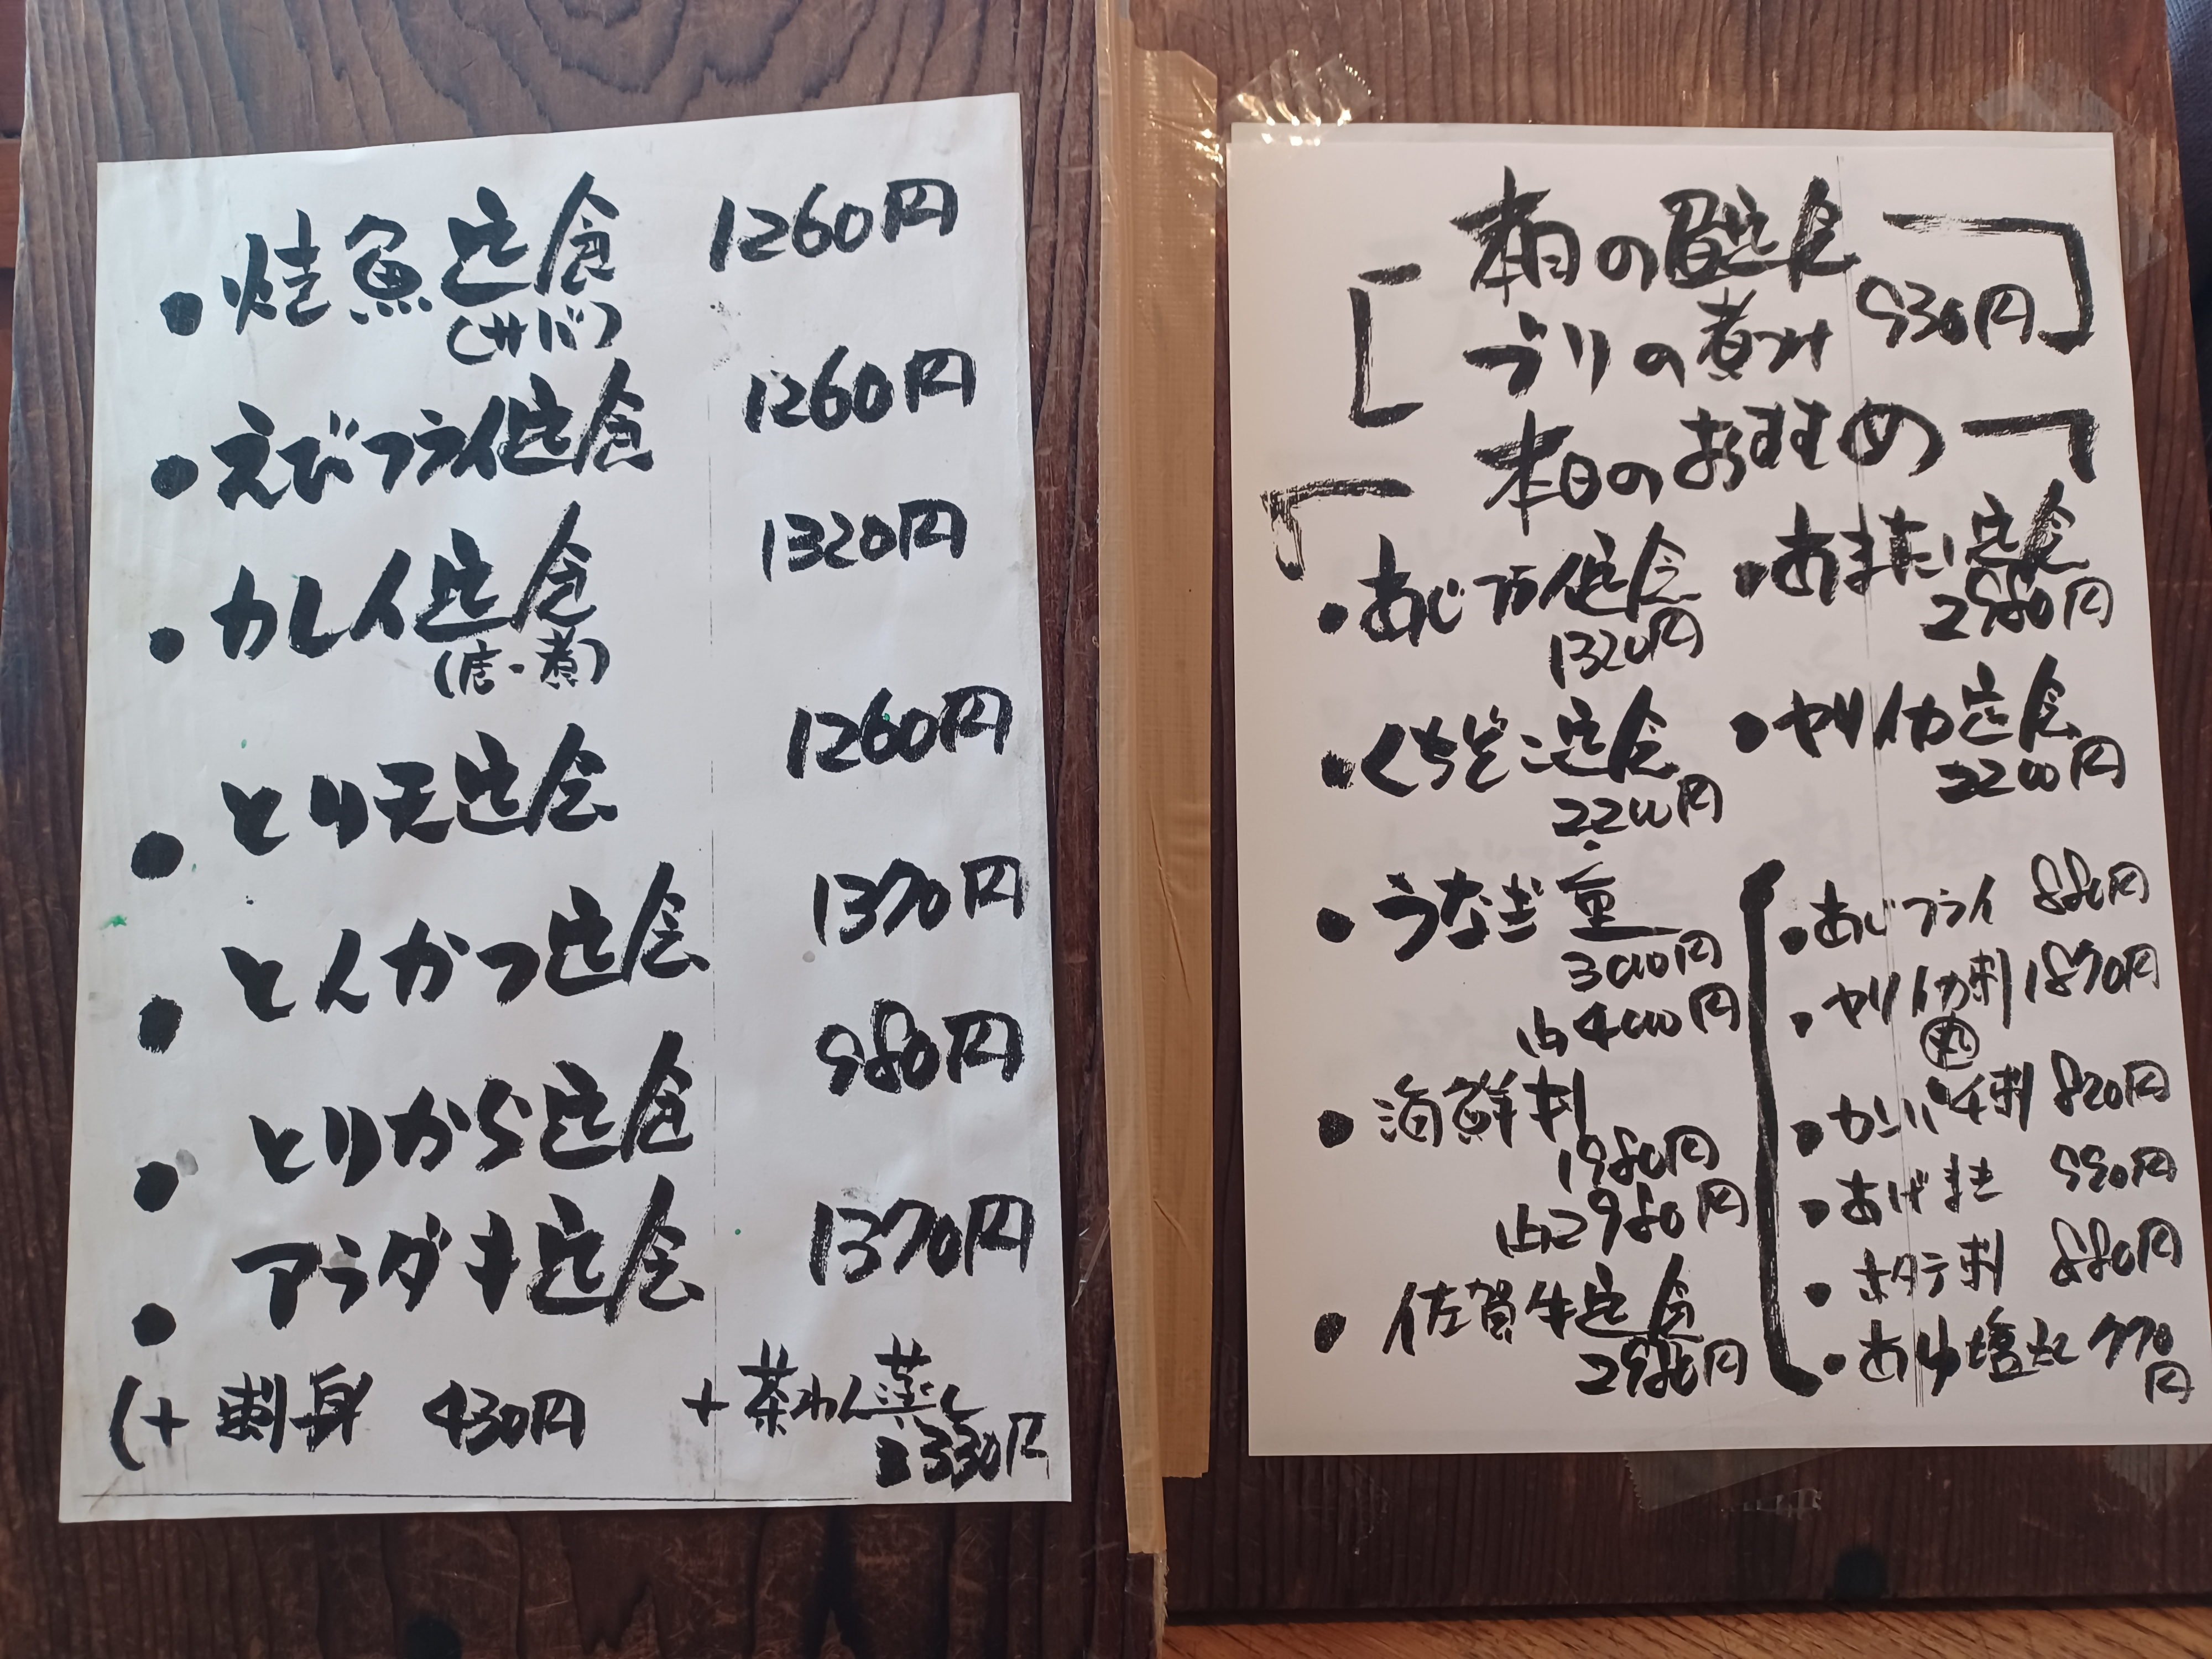 ・焼魚定食 1260円
(サバ)
・えびフライ定食 1260円
・カレイ定食 1320円
(唐・煮)
・とり天定食 1260円
・とんかつ定食 1370円
・とりから定食 980円
・アラダキ定食 1370円
(+ 刺身 430円 +茶わん蒸し
330円
本日の昼定食
ブリの煮つけ 930円
本日のおすすめ
・あじフライ定食
1320円
・くちぞこ定食
2200円
・うなぎ重
3000円
4000円
・海鮮刺
1980円
2980円
・佐賀牛定食
2980円
・あまだい定食
2980円
・ヤリイカ定食
2200円
・あじフライ 880円
・ヤリイカ刺 1870円
・かんぱち刺 820円
・あげまき 550円
・ホタテ刺 880円
・あゆ塩焼 770
円